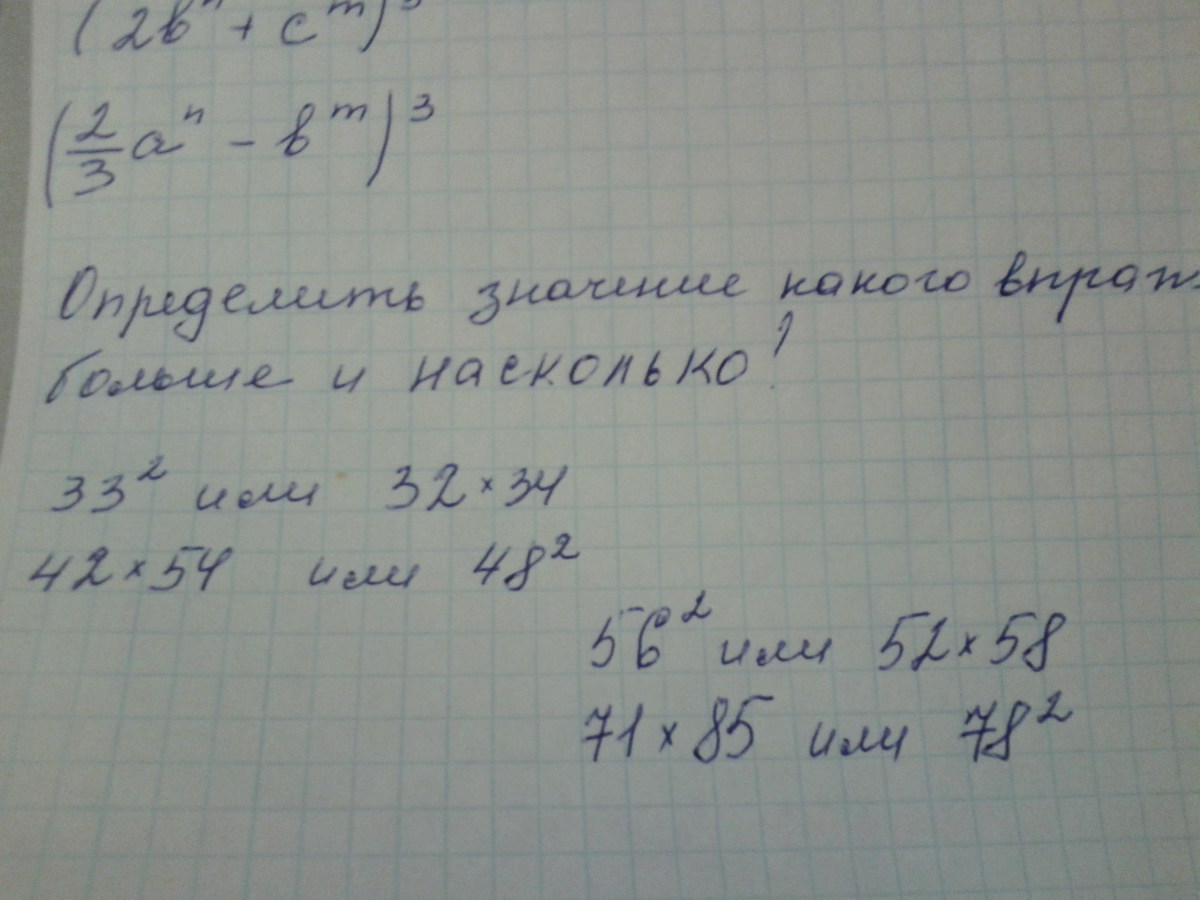 (2bⁿ + cᵐ)³
(2/3 aⁿ - bᵐ)³
Определить значение какого
больше и насколько?
33² или 32×34
42×54 или 48²
56² или 52×58
71×85 или 78²